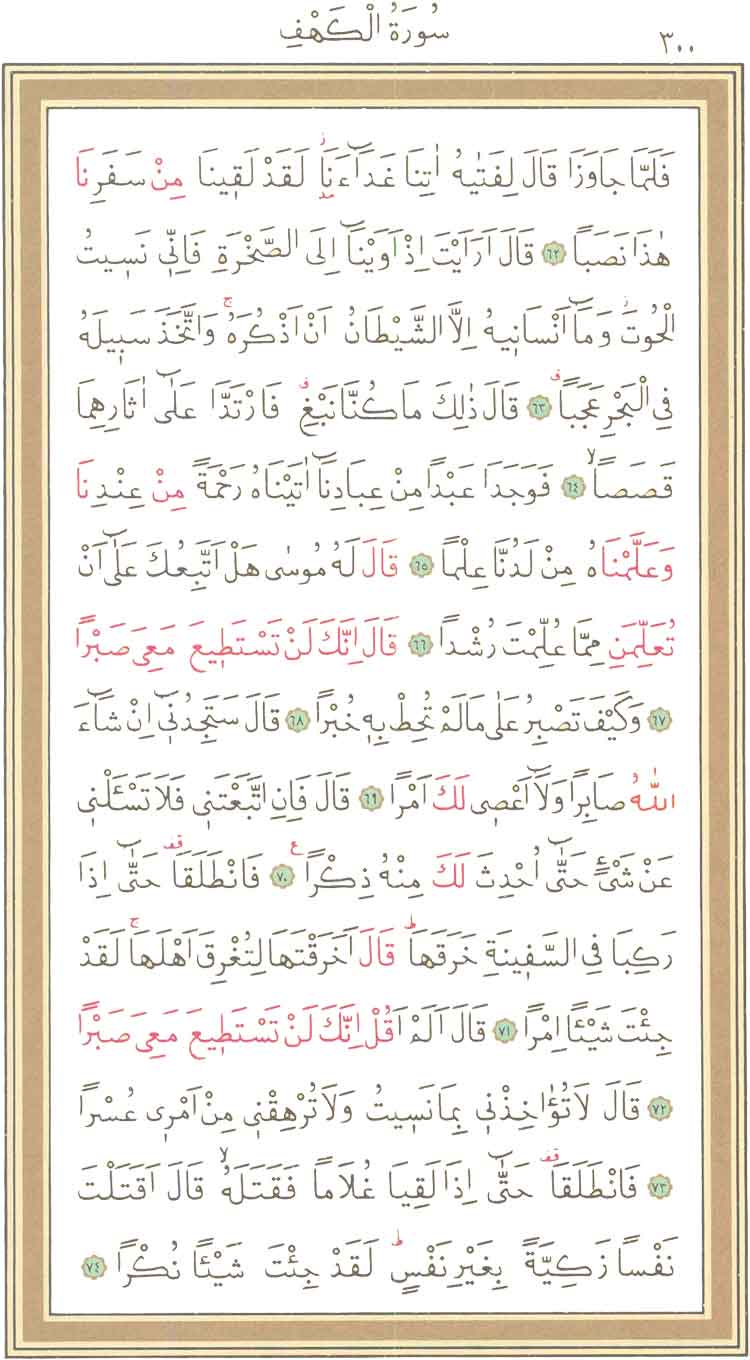 سُورَةُ الْكَهْفِ
٣٠٠
فَلَمَّا جَاوَزَا قَالَ لِفَتٰيهُ اٰتِنَا غَدَٓاءَنَاۘ لَقَدْ لَقٖينَا مِنْ سَفَرِنَا
هٰذَا نَصَبًا ﴿٦٢﴾ قَالَ اَرَاَيْتَ اِذْ اَوَيْنَٓا اِلَى الصَّخْرَةِ فَاِنّٖى نَسٖيتُ
الْحُوتَۘ وَمَٓا اَنْسَانٖيهُ اِلَّا الشَّيْطَانُ اَنْ اَذْكُرَهُۚ وَاتَّخَذَ سَبٖيلَهُ
فِى الْبَحْرِ عَجَبًا ﴿٦٣﴾ قَالَ ذٰلِكَ مَا كُنَّا نَبْغِ فَارْتَدَّا عَلٰٓى اٰثَارِهِمَا
قَصَصًاۙ ﴿٦٤﴾ فَوَجَدَا عَبْدًا مِنْ عِبَادِنَٓا اٰتَيْنَاهُ رَحْمَةً مِنْ عِنْدِنَا
وَعَلَّمْنَاهُ مِنْ لَدُنَّا عِلْمًا ﴿٦٥﴾ قَالَ لَهُ مُوسٰى هَلْ اَتَّبِعُكَ عَلٰٓى اَنْ
تُعَلِّمَنِ مِمَّا عُلِّمْتَ رُشْدًا ﴿٦٦﴾ قَالَ اِنَّكَ لَنْ تَسْتَطٖيعَ مَعِىَ صَبْرًا
﴿٦٧﴾ وَكَيْفَ تَصْبِرُ عَلٰى مَا لَمْ تُحِطْ بِهٖ خُبْرًا ﴿٦٨﴾ قَالَ سَتَجِدُنٖٓى اِنْ شَٓاءَ
اللّٰهُ صَابِرًا وَلَٓا اَعْصٖى لَكَ اَمْرًا ﴿٦٩﴾ قَالَ فَاِنِ اتَّبَعْتَنٖى فَلَا تَسْـَٔلْنٖى
عَنْ شَىْءٍ حَتّٰٓى اُحْدِثَ لَكَ مِنْهُ ذِكْرًا ﴿٧٠﴾ فَانْطَلَقَا حَتّٰٓى اِذَا
رَكِبَا فِى السَّفٖينَةِ خَرَقَهَاۜ قَالَ اَخَرَقْتَهَا لِتُغْرِقَ اَهْلَهَاۚ لَقَدْ
جِئْتَ شَيْـًٔا اِمْرًا ﴿٧١﴾ قَالَ اَلَمْ اَقُلْ اِنَّكَ لَنْ تَسْتَطٖيعَ مَعِىَ صَبْرًا
﴿٧٢﴾ قَالَ لَا تُؤَاخِذْنٖى بِمَا نَسٖيتُ وَلَا تُرْهِقْنٖى مِنْ اَمْرٖى عُسْرًا
﴿٧٣﴾ فَانْطَلَقَا حَتّٰٓى اِذَا لَقِيَا غُلَامًا فَقَتَلَهُۙ قَالَ اَقَتَلْتَ
نَفْسًا زَكِيَّةً بِغَيْرِ نَفْسٍۜ لَقَدْ جِئْتَ شَيْـًٔا نُكْرًا ﴿٧٤﴾